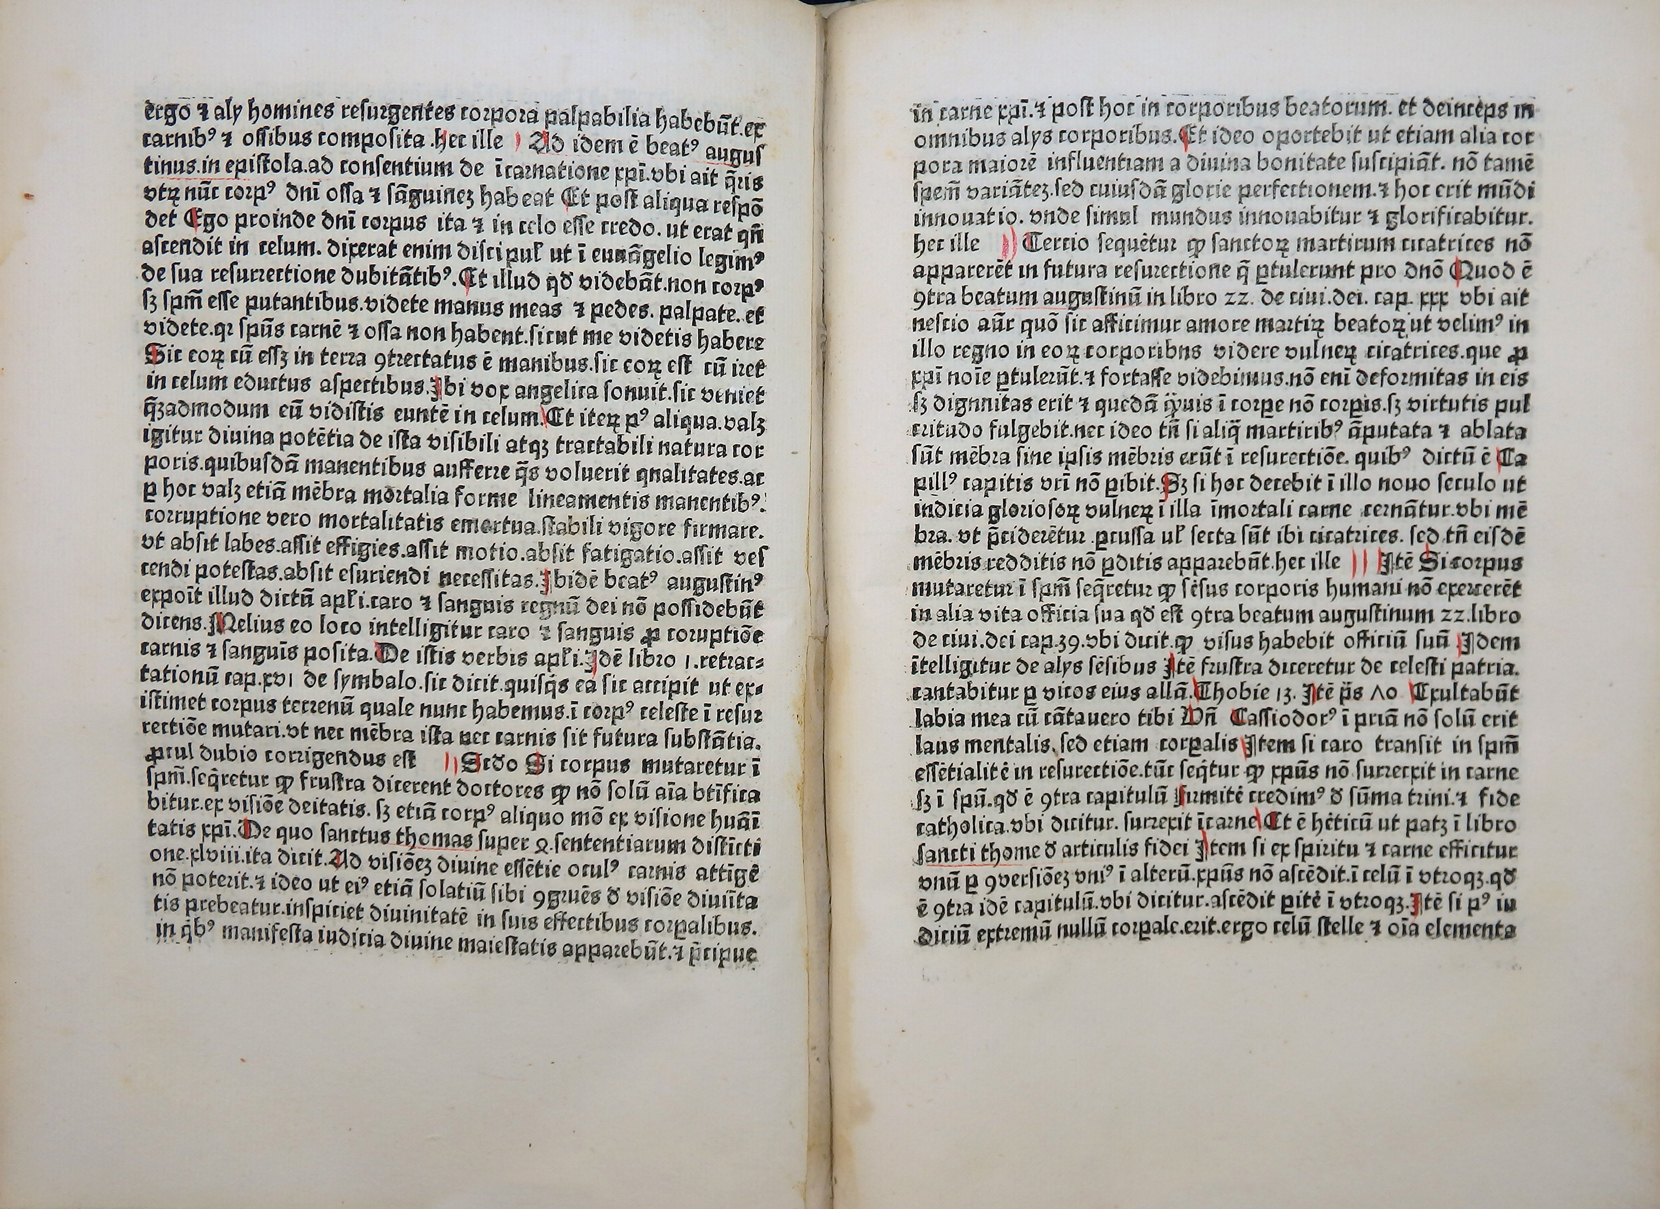 ergo ⁊ aly homines resurgentes corpora palpabilia habebūt.ex
carnibꝰ ⁊ ossibus composita .hec ille Ad idem ē beatꝰ augus
tinus.in epistola.ad consentium de īcarnatione xpī.vbi ait q̄ris
vtꝝ nūc corpꝰ dnī ossa ⁊ sāguineꝫ habeat Et post aliqua respō
det Ego proinde dnī corpus ita ⁊ in celo esse credo. ut erat qn̄
ascendit in celum. dixerat enim discipuł ut ī euuāgelio legimꝰ
de sua resurrectione dubitātibꝰ.Et illud qd̄ videbāt.non corpꝰ
sꝫ spm̄ esse putantibus.videte manus meas ⁊ pedes. palpate.et
videte.qꝛ spūs carnē ⁊ ossa non habent.sicut me videtis habere
Sic eoꝝ cū essꝫ in terra ꝯtrectatus ē manibus.sic eoꝝ est cū iret
in celum eductus aspectibus.Ibi vox angelica sonuit.sic veniet
q̄ꝫadmodum eū vidistis euntē in celum.Et iteꝝ pꝰ aliqua.valꝫ
igitur diuina potētia de ista visibili atqꝫ tractabili natura cor
poris.quibusdā manentibus aufferre q̄s voluerit qnalitates.ac
ꝑ hoc valꝫ etiā mēbra mortalia forme lineamentis manentibꝰ.
corruptione vero mortalitatis emortua.stabili vigore firmare.
vt absit labes.assit effigies.assit motio.absit fatigatio.assit ves
cendi potestas.absit esuriendi necessitas.Ibidē beatꝰ augustinꝰ
expoīt illud dictū apłi.caro ⁊ sanguis regnū dei nō possidebūt
dicens.Melius eo loco intelligitur caro ⁊ sanguis ꝓ coruptiōe
carnis ⁊ sanguīs posita.De istis verbis apłi.Idē libro 1.retrac⸗
tationū cap.xvı de symbalo.sic dicit.quisq̄s ea sic accipit ut ex⸗
istimet corpus terrenū quale nunc habemus.ī corpꝰ celeste ī resur
rectiōe mutari.vt nec mēbra ista nec carnis sit futura substātia.
ꝓcul dubio corrigendus est Scdo Si corpus mutaretur ī
spm̄.seq̄retur ꝙ frustra dicerent doctores ꝙ nō solū aīa btīfica
bitur.ex visiōe deitatis. sꝫ etiā corpꝰ aliquo mō ex visione huāī
tatis xpī.De quo sanctus thomas super 2.sententiarum disticti
one.xlviii.ita dicit.Ad visiōeꝫ diuine essētie oculꝰ carnis attīgē
nō poterit.⁊ ideo ut eiꝰ etiā solatiū sibi ꝯgruēs đ visiōe diuīta
tis prebeatur.inspiciet diuinitatē in suis effectibus corꝑalibus.
in q̄bꝰ manifesta iudicia diuine maiestatis apparebūt.⁊ p̄cipue
in carne xpī.⁊ post hoc in corporibus beatorum. et deinceps in
omnibus alys corporibus.Et ideo oportebit ut etiam alia cor
pora maiorē influentiam a diuina bonitate suscipiāt. nō tamē
spem̄ variāteꝫ.sed cuiusdā glorie perfectionem.⁊ hoc erit mūdi
innouatio. vnde simul mundus innouabitur ⁊ glorificabitur.
hec ille Tercio sequētur ꝙ sanctoꝝ marticum cicatrices nō
apparerēt in futura resurectione q̄ ꝑtulerunt pro dnō Quod ē
ꝯtra beatum augustinū in libro 22. de ciui.dei. cap. xxx vbi ait
nescio aūr quō sic afficimur amore martiꝝ beatoꝝ ut velimꝰ in
illo regno in eoꝝ corporibns videre vulneꝝ cicatrices.que ꝓ
xpī noīe ꝑtulerūt.⁊ fortasse videbimus.nō enī deformitas in eis
sꝫ dignnitas erit ⁊ quedā q̄ꝫuis ī corꝑe nō corꝑis.sꝫ virtutis pul
critudo fulgebit.nec ideo tn̄ si aliq̄ martiribꝰ āputata ⁊ ablata
sūt mēbra sine ipsis mēbris erūt ī resurectiōe. quibꝰ dictū ē Ca
pillꝰ capitis vrī nō ꝑibit.Sꝫ si hoc decebit ī illo nouo seculo ut
indicia gloriosoꝝ vulneꝝ ī illa īmortali carne cernātur.vbi mē
bra. vt p̄ciderētur ꝑcussa uł secta sūt ibi cicatrices. sed tn̄ eisdē
mēbris redditis nō ꝑditis apparebūt.hec ille Itē Si corpus
mutaretur ī spm̄ seq̄retur ꝙ sēsus corporis humani nō exercerēt
in alia vita officia sua qd̄ est ꝯtra beatum augustinum 22.libro
de ciui.dei cap.39.vbi dicit.ꝙ visus habebit officiū suū Idem
ītelligitur de alys sēsibus Itē frustra diceretur de celesti patria.
cantabitur ꝑ vicos eius allā.Thobie 13. Itē p̄s ʌo Exultabūt
labia mea cū cātauero tibi Vn̄ Cassiodorꝰ ī priā nō solū erit
laus mentalis. sed etiam corꝑalis Item si caro transit in spm̄
essētialitē in resurectiōe.tūc seq̄tur ꝙ xpūs nō surrexit in carne
sꝫ ī spū.qd̄ ē ꝯtra capitulū firmitē credimꝰ đ sūma trini.⁊ fide
catholica.vbi dicitur. surrexit īcarne Et ē hēticū ut patꝫ ī libro
sancti thome đ articulis fidei Item si ex spiritu ⁊ carne efficitur
vnū ꝑ ꝯversiōeꝫ vniꝰ ī alterū.xpūs nō ascēdit.ī celū ī vtroqꝫ.qd̄
ē ꝯtra idē capitulū.vbi dicitur.ascēdit ꝑitē ī vtroqꝫ.Itē si pꝰ iu
diciū extremū nullū corꝑale.erit.ergo celū stelle ⁊ oīa elementa